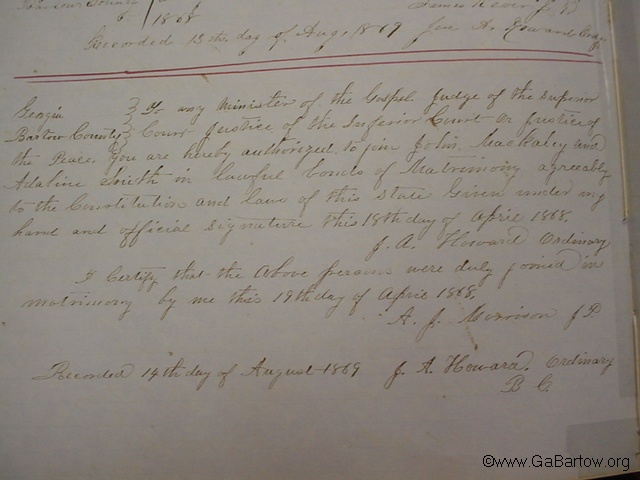 1868
Recorded 13th day of Aug, 1869 Jas A. Howard Ordy
Georgia } To any Minister of the Gospel. Judge of the Superior
Bartow County } Court Justice of the Inferior Court or Justice of
the Peace. You are hereby authorized to join John Mackaley and
Adaline Smith in lawful bonds of Matrimony agreeably
to the Constitution and laws of this State Given under my
hand and official signature this 18th day of April 1868.
J. A. Howard Ordinary
I Certify that the Above persons were duly joined in
matrimony by me this 19th day of April 1868.
A. J. Morrison J P.
Recorded 14th day of August 1869 J. A. Howard. Ordinary
B C.
©www.GaBartow.org